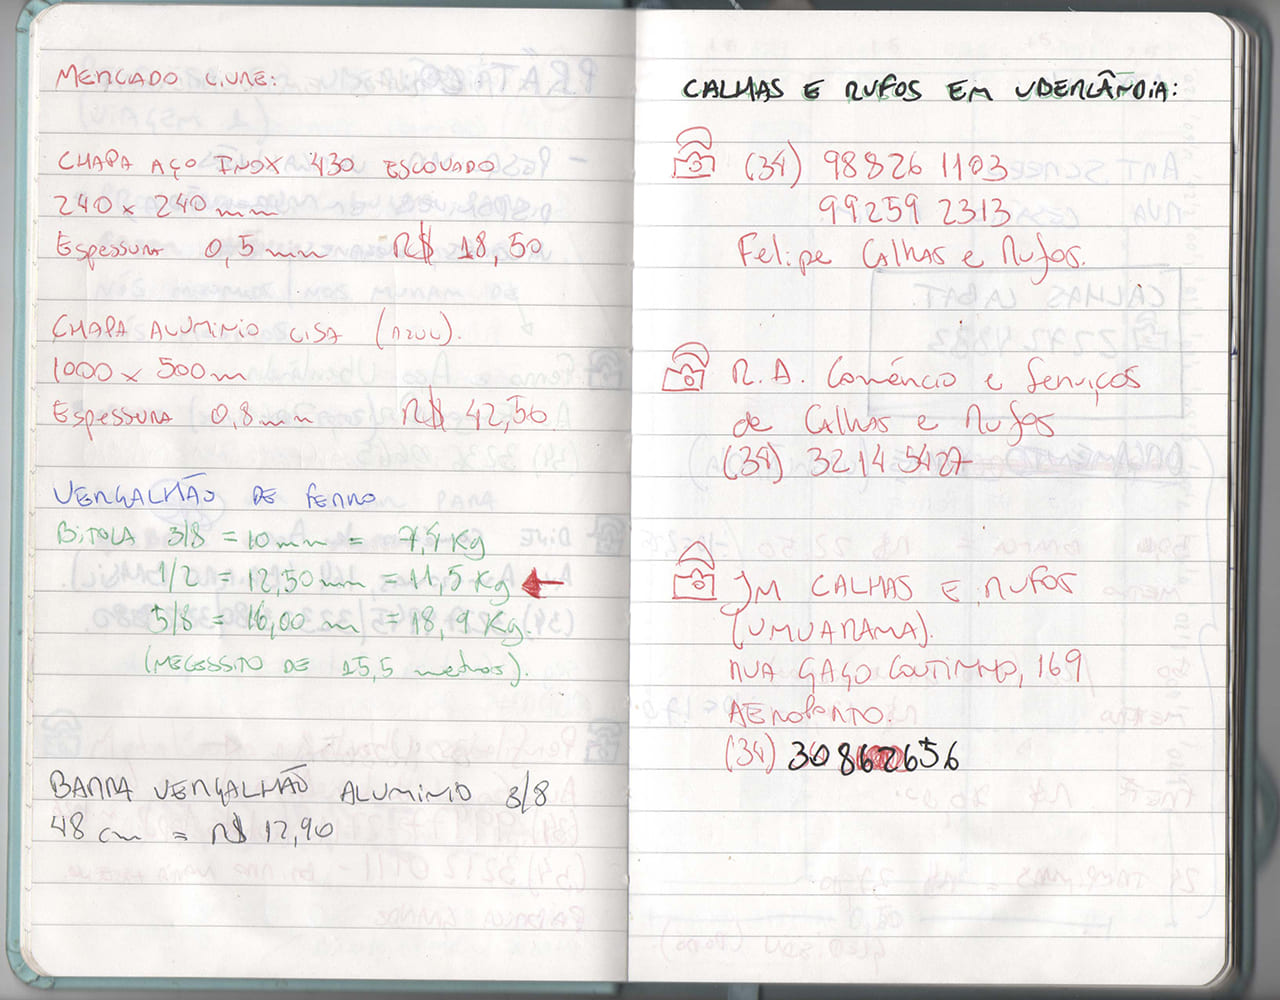 MERCADO LIVRE:
CHAPA AÇO INOX 430 ESCOVADO
240 x 240 mm
Espessura 0,5 mm R$ 18,50
CHAPA ALUMINIO LISA (AZUL).
1000 x 500 m
Espessura 0,8 mm R$ 42,50
VERGALHÃO DE FERRO
BITOLA 3/8 = 10 mm = 7,4 Kg
1/2 = 12,50 mm = 11,5 Kg
5/8 = 16,00 m = 18,9 Kg.
(NECESSITO DE 15,5 metros).
BARRA VERGALHÃO ALUMINIO 3/8
48 cm = R$ 12,90
CALHAS E RUFOS EM UBERLÂNDIA:
(34) 98826 1103
99259 2313
Felipe Calhas e Rufos.
R.A. Comércio e Serviços
de Calhas e Rufos
(34) 3214 5427
JM CALHAS E RUFOS
(UMUARAMA).
RUA GAGO COUTINHO, 169
AEROPORTO.
(34) 30862656